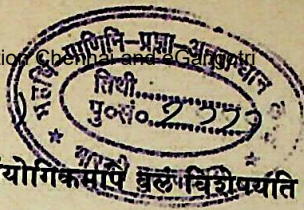 tion Chennai and eGangotri
महर्षि-पाणिनि-प्रज्ञा-अनुसन्धान
तिथी
पु०सं० 2777
योगिकमपि बलं विशेषयति